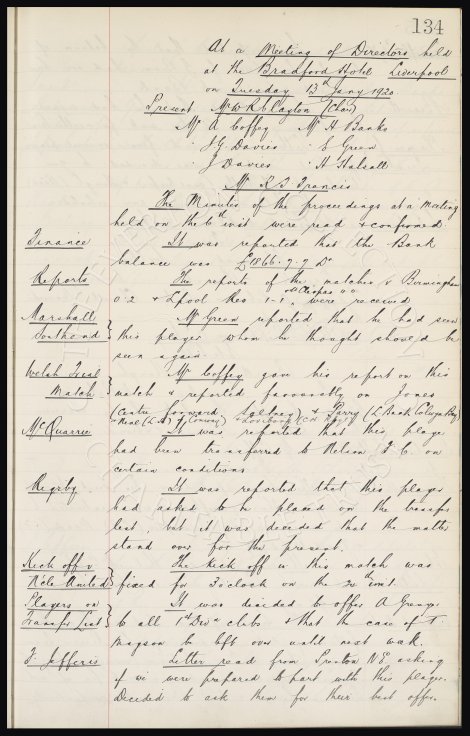 134
At a Meeting of Directors held
at the Bradford Hotel Liverpool
on Tuesday 13th Jany 1920
Present Mr W R Clayton (Chair)
Mr A Coffey Mr H Banks
" J G Davies " E Green
" J Davies " H Halsall
Mr R T Francis
The Minutes of the proceedings at a Meeting
held on the 6th inst were read & confirmed
Finance
It was reported that the Bank
balance was £1866-7-7 Dr
Reports
The reports of the matches v Birmingham
0-2 & Lpool Res 1-1, were received
Marshall
Southend
Mr Green reported that he had seen
this player whom he thought should be
seen again
Welsh Trial
Match
Mr Coffey gave his report on this
match & reported favourably on Jones
(Centre forward,
McQuarrie
It was reported that this player
had been transferred to Nelson F C on
certain conditions
Rigby
It was reported that this player
had asked to be placed on the transfer
list, but it was decided that the matter
stand over for the present.
Kick off v
Nele United
The kick off in this match was
fixed for 3 o'clock on the inst.
Players on
Transfer List
It was decided to offer A Grenyer
to all 1st Divn clubs & that the case of T
Mayson be left over until next week.
F Jefferis
Letter read from Preston N E asking
if we were prepared to part with this player.
Decided to ask them for their best offer.